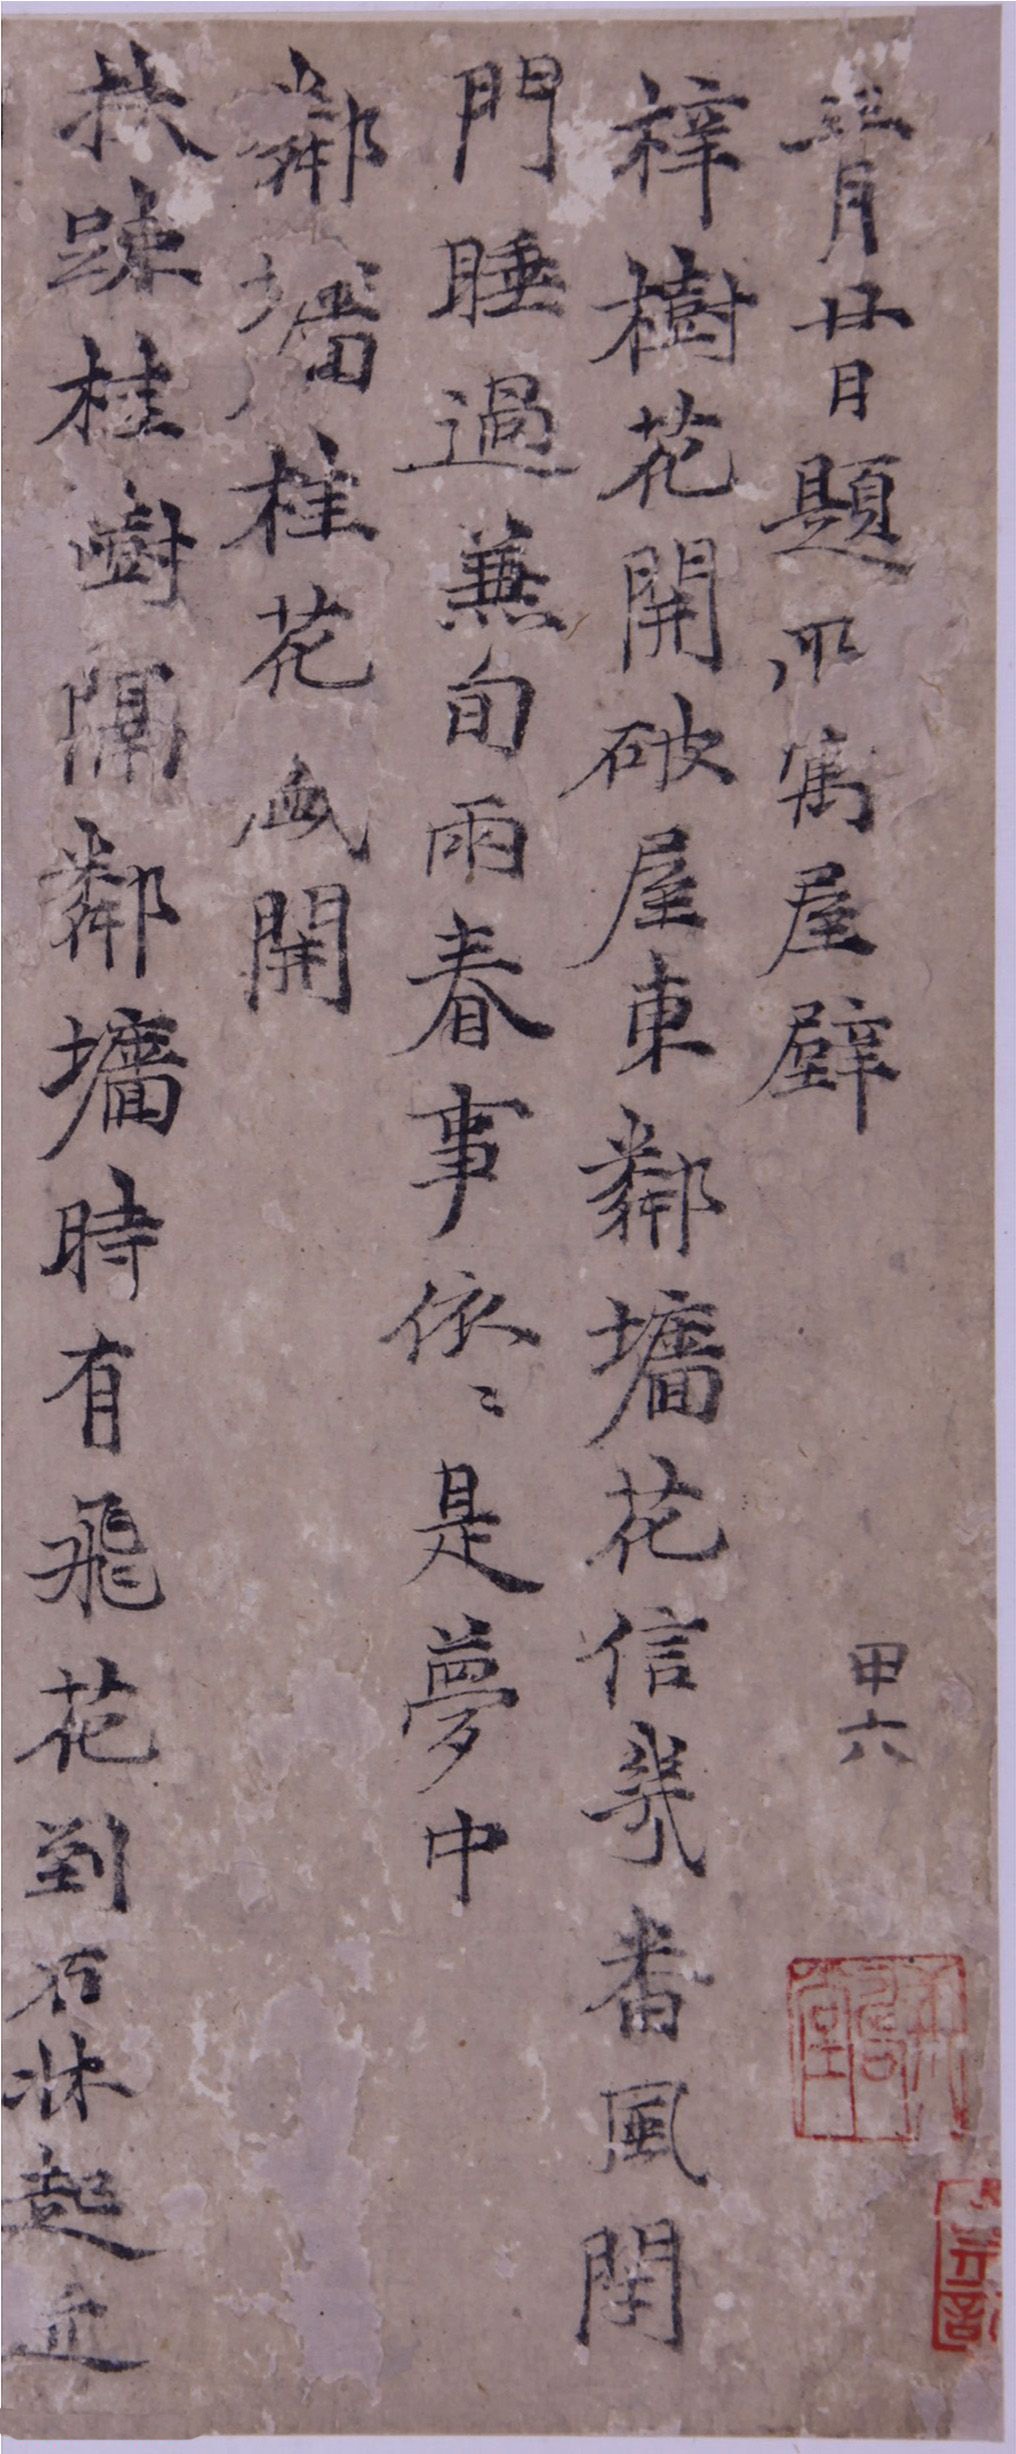 三月廿日題所寓屋壁
甲六
梓樹花開破屋東鄰墻花信幾番風閉
門睡過兼旬雨春事依〻是夢中
鄰墻桂花盛開
扶疎桂樹隔鄰墻時有飛花到石牀起近